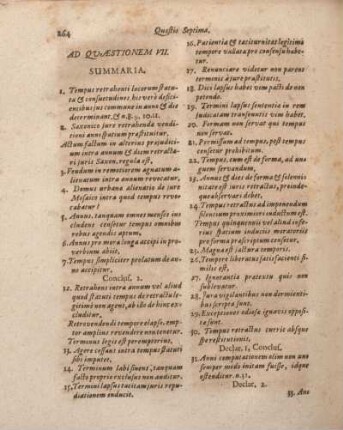 264
Questio Septima,
AD QUÆSTIONEM VII.
SUMMARIA.
1. Tempus retrahenti locorum statuta
& consuetudines, his verò deficientibus
jus commune in anno & die
determinant. & n. 8. 9. 10. 11.
2. Saxonico jure retrahenda venditioni
anni spatium præstituitur.
Actum factum in alterius præjudicium
intra annum & diem retractari
juris Saxon. regula est,
3. Feudum in remotiorem agnatum
alienatum intra annum revocatur,
4. Domus urbana alienatio de jure
Mosaico intra quod tempus revocabatur?
5. Annus, tanquam omnes menses includens
censetur tempus omnibus
rebus agendis aptum,
6. Annus pro mera longa accipi in proverbium
abiit.
7. Tempus simpliciter prolatum de anno
accipitur.
Conclus. 1.
12. Retrahens intra annum vel aliud
quod statuti tempus de retractu legitimè
non agens, ab illo de hinc excluditur,
Retrovendendi tempore elapso, emptor
amplius revendere non tenetur.
Terminus legis est peremptorius,
13. Agere cessans intra tempus statuti
sibi imputet.
14. Terminum labi sinens, tanquam
facto proprio exclusus non auditur.
15. Termini lapsus tacitam juris repudiationem
enducit.
16. Patientia & taciturnitas legitimo
tempore vallata pro consensu habetur.
17. Renunciare videtur non parens
termino à jure præstituto.
18. Dies lapsus habet vim pacti de non
petendo.
19. Termini lapsus sententia in rem
judicatam transeuntis vim habet.
20. Formam non servat qui tempus
non servat.
21. Permissum ad tempus, post tempus
censetur prohibitum.
22. Tempus, cum est de forma, ad unguem
servandum,
23. Annus & dies de forma & solennitate
est juris retractus, proindeque
observari debet.
24. Tempus retractus ad imponendum
silentium proximiori inductum est.
Tempus quinquennii vel aliud inferius
statutum inductis moratoriis
pro forma præscriptum censetur.
25. Magna est jactura temporis.
26. Tempore liberatus facto facienti similis
est,
27. Ignorantia prætextu quis non
sublevatur.
28. Jura vigilantibus non dormientibus
scripta sunt.
29. Exceptiones odiosa ignavis oppositæ
sunt.
30. Tempus retractus currit absque
spe restitutionis.
Declar. 1, Conclus.
31. Anni computationem olim non uno
semper modo initam fuisse, idque
ostenditur. n. 32.
Declar. 2.
33. Ann